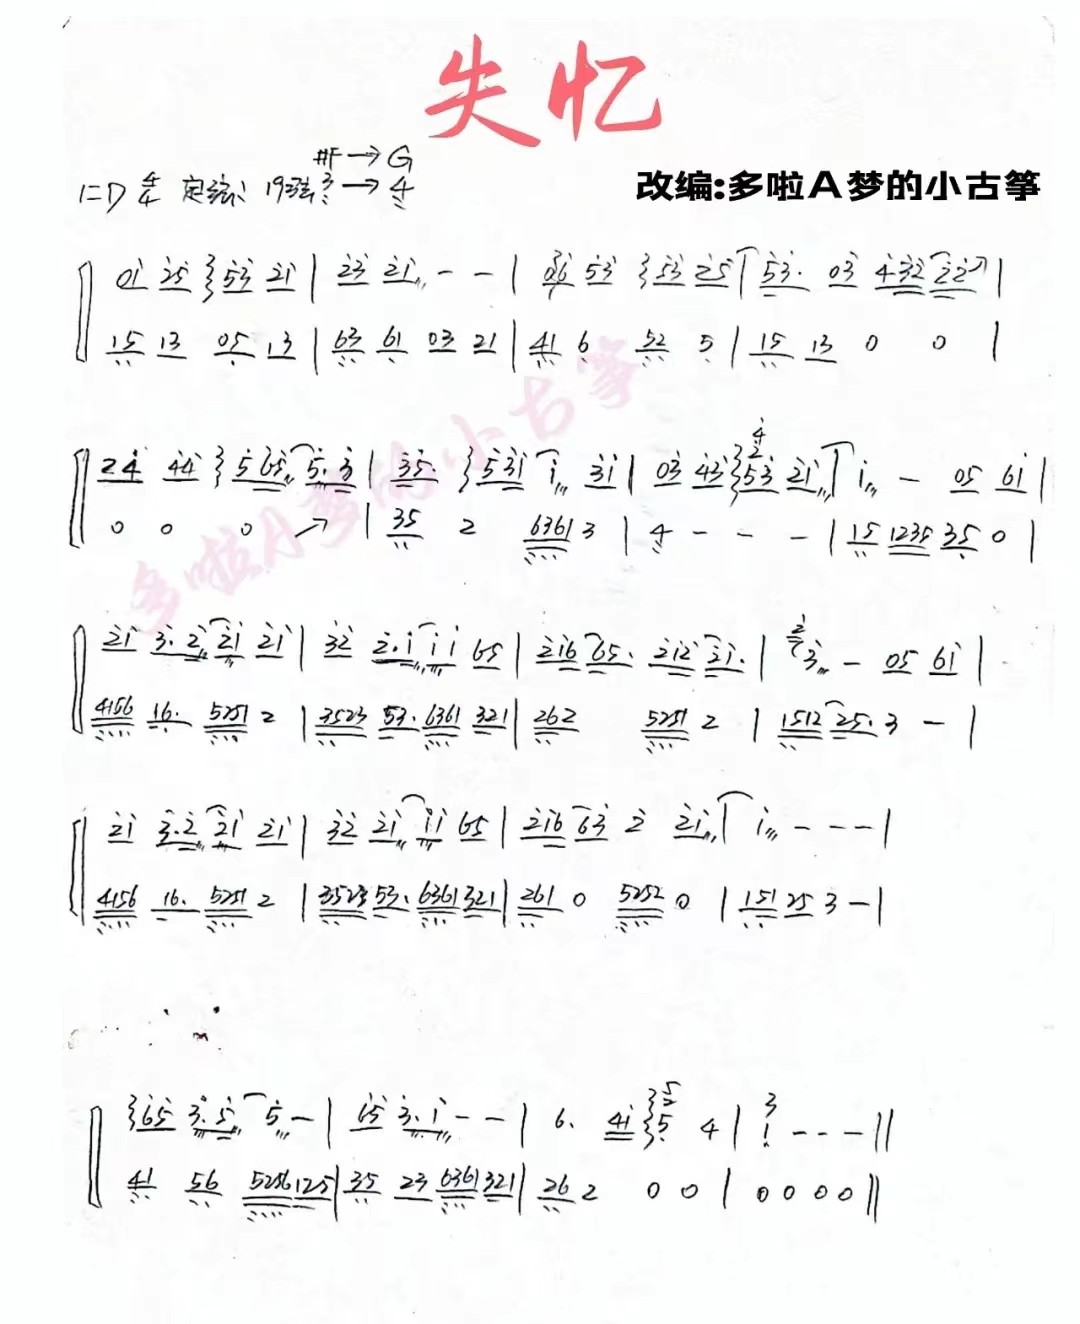 失忆
#F→G
1=D 4/4 定弦: 19弦3→4
改编:多啦A梦的小古筝
01 25 53 21 | 23 21 - - | 06 53 53 25 | 53. 03 432 22 |
15 13 05 13 | 63 61 03 21 | 41 6 52 5 | 15 13 0 0 |
多啦A梦的小古筝
24 44 5 65 5.3 | 35. 531 1 31 | 03 43 53 21 | 1 - 05 61 |
0 0 0 ↗ | 35 2 6361 3 | 4 - - - | 15 1235 35 0 |
21 3.2 21 21 | 32 2.1 11 65 | 216 65. 212 21. | 3 - 05 61 |
4156 16. 5251 2 | 3523 53. 6361 321 | 262 5251 2 | 1512 25. 3 - |
21 3.2 21 21 | 32 21 11 65 | 216 63 2 21 | 1 - - - |
4156 16. 5251 2 | 3523 53. 6361 321 | 261 0 5252 0 | 151 25 3 - |
65 3.5 5 - | 65 3.1 - - | 6. 41 5 4 | 1 - - - ||
41 56 5256 125 | 35 23 6361 321 | 26 2 0 0 | 0 0 0 0 ||